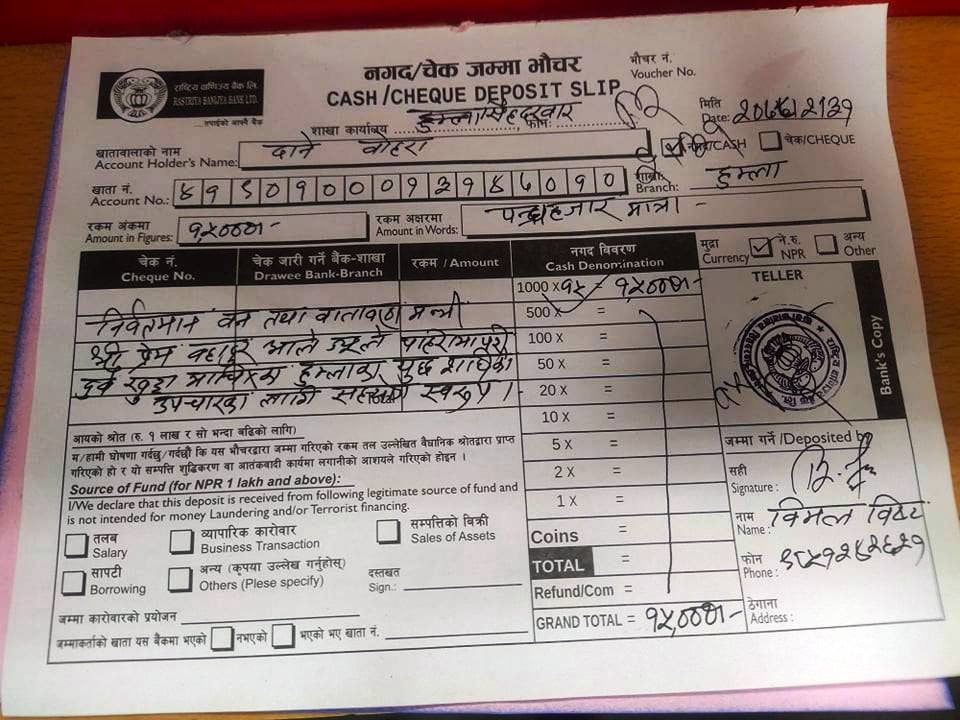 राष्ट्रिय वाणिज्य बैंक लि.
RASTRIYA BANIJYA BANK LTD.
...तपाईंको आफ्नै बैंक
नगद/चेक जम्मा भौचर
CASH/CHEQUE DEPOSIT SLIP
भौचर नं.
Voucher No.
शाखा कार्यालय हुम्ला सिंहदरवार फोन:
मिति
Date:
खातावालाको नाम
Account Holder's Name: दाने वोहरा
नगद/CASH चेक/CHEQUE
खाता नं.
Account No.:
शाखा
Branch: हुम्ला
रकम अंकमा
Amount in Figures: १५०००।-
रकम अक्षरमा
Amount in Words: पन्ध्रहजार मात्र।-
मुद्रा
Currency
ने.रु.
NPR
अन्य
Other
चेक नं.
Cheque No.
चेक जारी गर्ने बैंक-शाखा
Drawee Bank-Branch
रकम / Amount
नगद विवरण
Cash Denomination
TELLER
1000 x १५ = १५०००।-
500 x =
100 x =
50 x =
20 x =
10 x =
5 x =
2 x =
1 x =
Coins
TOTAL =
Refund/Com =
GRAND TOTAL = १५,०००।-
निर्वतमान वन तथा वातावरण मन्त्री
श्री प्रेम बहादुर आले
हुम्लाका
उपचारका लागि स्वरुप।
आयको श्रोत (रु. १ लाख र सो भन्दा बढिको लागि)
म/हामी घोषणा गर्दछु/गर्दछौं कि यस भौचरद्वारा जम्मा गरिएको रकम तल उल्लेखित वैधानिक श्रोतद्वारा प्राप्त
गरिएको हो र यो सम्पत्ति शुद्धिकरण वा आतंकवादी कार्यमा लगानीको आशयले गरिएको होइन ।
Source of Fund (for NPR 1 lakh and above):
I/We declare that this deposit is received from following legitimate source of fund and
is not intended for money Laundering and/or Terrorist financing.
तलब
Salary
व्यापारिक कारोवार
Business Transaction
सम्पत्तिको बिक्री
Sales of Assets
सापटी
Borrowing
अन्य (कृपया उल्लेख गर्नुहोस्)
Others (Plese specify)
दस्तखत
Sign.:
जम्मा कारोवारको प्रयोजन
जम्माकर्ताको खाता यस बैंकमा भएको नभएको भएको भए खाता नं.
जम्मा गर्ने /Deposited by
सही
Signature :
नाम
Name : विमल
फोन
Phone : ९८५१२४२६२१
ठेगाना
Address :
Bank's Copy